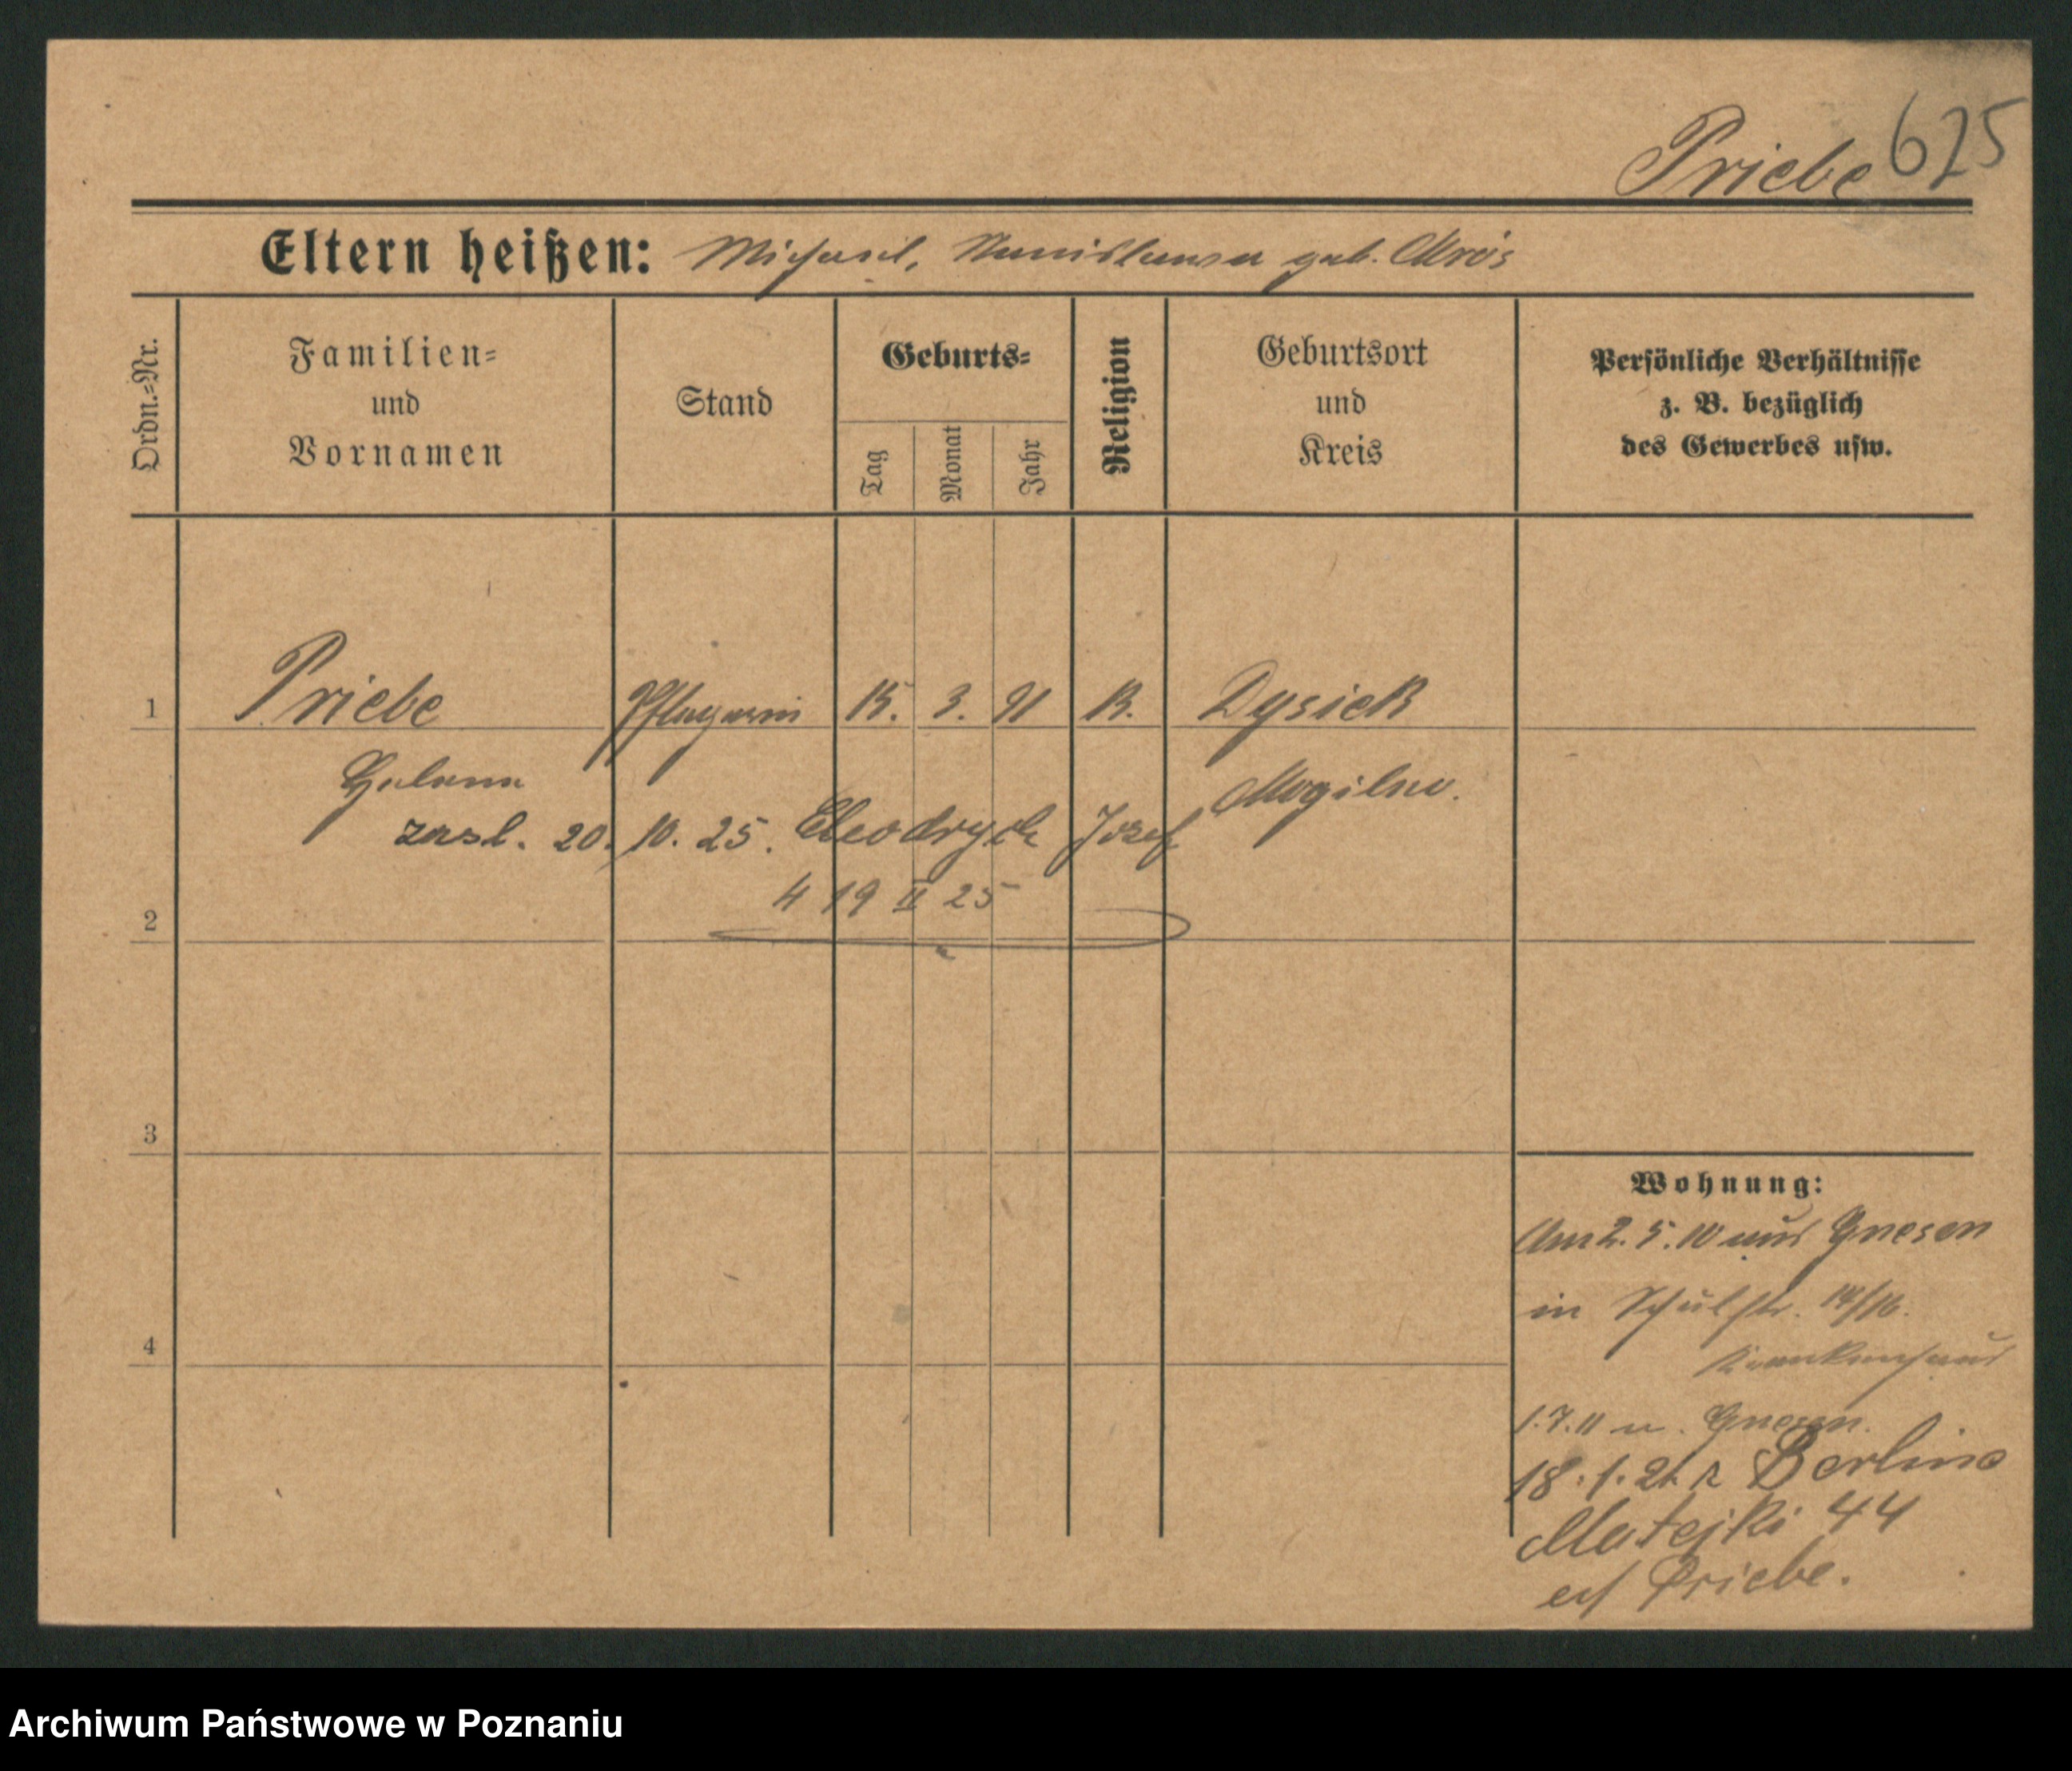 Priebe 625
Eltern heißen: Michael, Stanislawa geb. Mrós
Ordn.=Nr.
Familien=
und
Vornamen
Stand
Geburts=
Tag
Monat
Jahr
Religion
Geburtsort
und
Kreis
Persönliche Verhältnisse
z. B. bezüglich
des Gewerbes usw.
1 Priebe Pflegerin 15. 3. 91 K. Dysiek
Helena Mogilno.
zasl. 20. 10. 25. Józef
4 19 II 25
2
3
4
Wohnung:
Am 2. 5. 10 aus Gnesen
in Schulstr. 14/16.
Krankenhaus
1.7.11 n. Gnesen.
18. 1. 21. z Berlina
Matejki 44
Priebe.
Archiwum Państwowe w Poznaniu